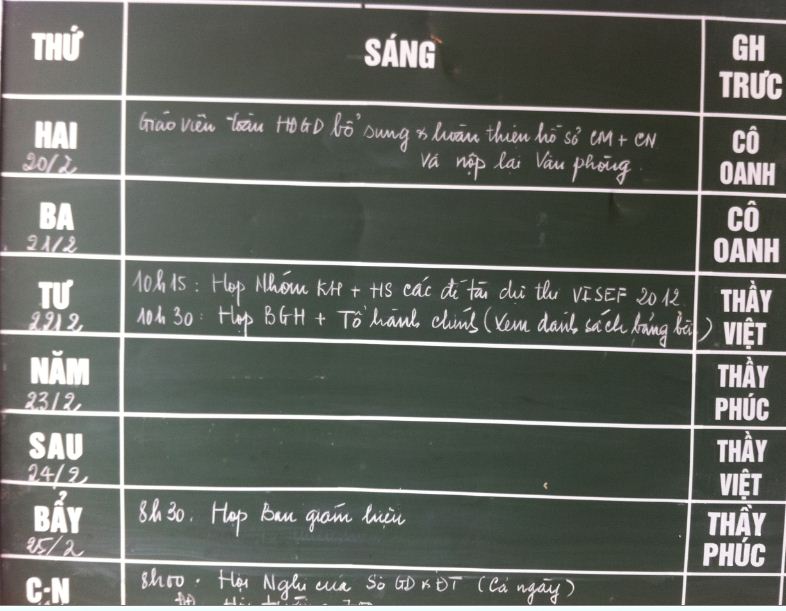 THỨ
SÁNG
GH
TRƯC
HAI
20/2
Giáo viên toàn HĐGD bổ sung & hoàn thiện hồ sơ CM + CN
và nộp lại Văn phòng.
CÔ
OANH
BA
21/2
CÔ
OANH
TƯ
22/2
10h15: Họp Nhóm KH + HS các đề tài dự thi VISEF 2012.
10h30: Họp BGH + Tổ hành chính (Xem danh sách bảng bên)
THẦY
VIỆT
NĂM
23/2
THẦY
PHÚC
SAU
24/2
THẦY
VIỆT
BẨY
25/2
8h30. Họp Ban giám hiệu
THẦY
PHÚC
C-N
8h00. Hội Nghị của Sở GD&ĐT (Cả ngày)